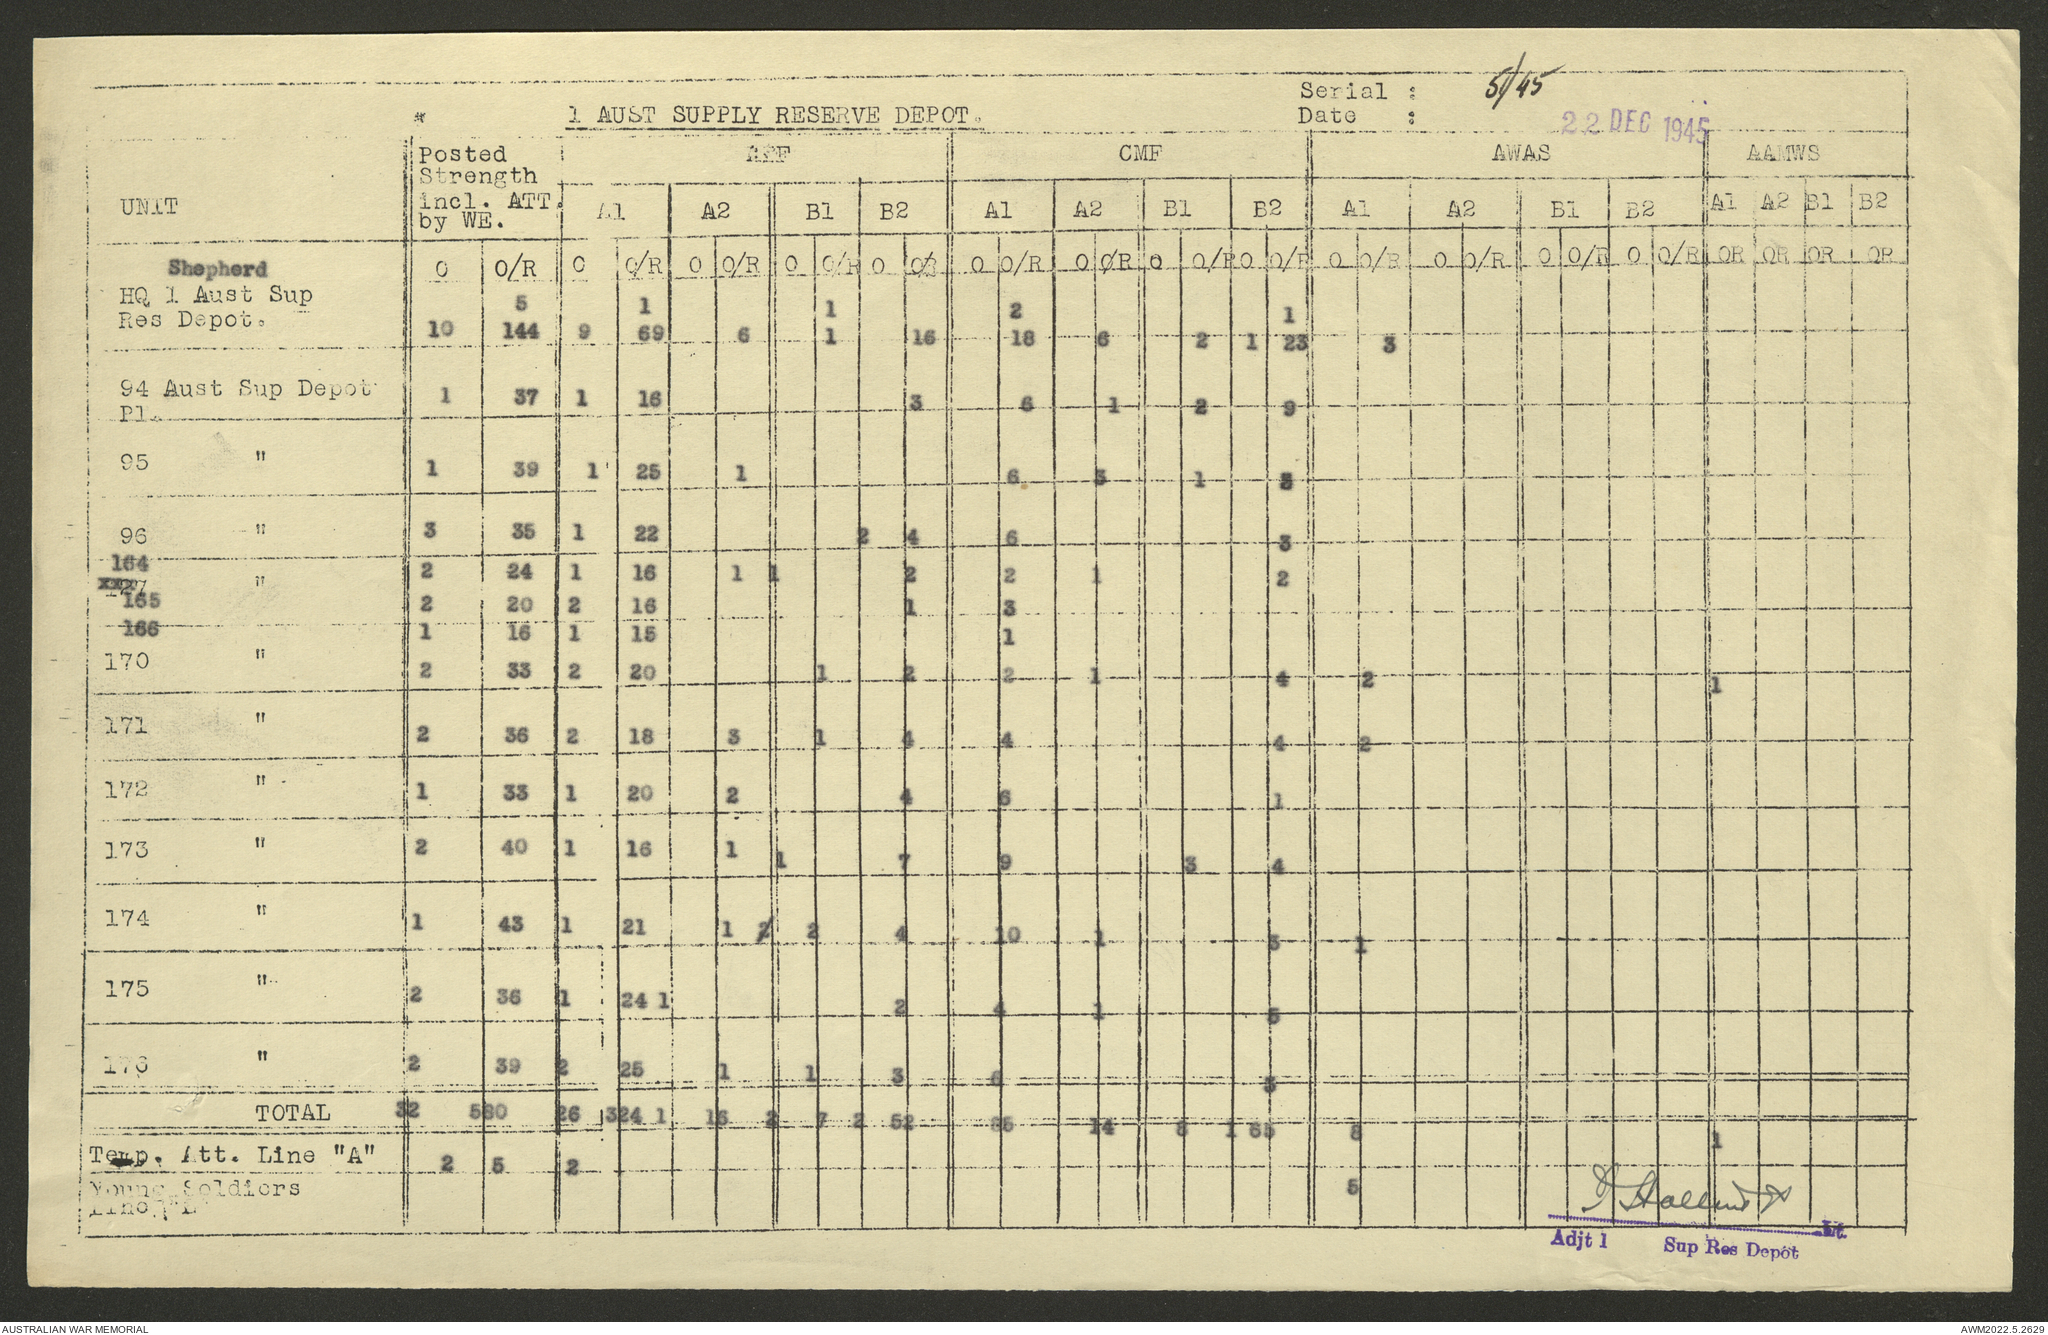 Serial : 51/45
* 1 AUST SUPPLY RESERVE DEPOT.
Date : 22 DEC 1945
UNIT Posted Strength incl. ATT. by WE. AIF CMF AWAS AAMWS
A1 A2 B1 B2 A1 A2 B1 B2 A1 A2 B1 B2 A1 A2 B1 B2
O O/R O O/R O O/R O O/R O O/R O O/R O O/R O O/R O O/R O O/R O O/R O O/R O O/R OR OR OR OR
Shepherd
5 1 1 2 1
HQ 1 Aust Sup
Res Depot. 10 144 9 69 6 1 16 18 6 2 1 23 3
94 Aust Sup Depot 1 37 1 16 3 6 1 2 9
Pl.
95 " 1 39 1 25 1 6 3 1
96 " 3 35 1 22 2 4 6 3
164 2 24 1 16 1 1 2 2 1 2
"
165 2 20 2 16 1 3
166 1 16 1 15 1
170 " 2 33 2 20 1 2 2 1 4 2 1
171 " 2 36 2 18 3 1 4 4 4 2
172 " 1 33 1 20 2 4 6 1
173 " 2 40 1 16 1 1 7 9 3 4
174 " 1 43 1 21 1 2 2 4 10 1 3 1
175 " 2 36 1 24 1 2 4 1 5
176 " 2 39 2 25 1 1 3 6 3
TOTAL 32 580 26 324 1 16 2 7 2 52 85 14 8 1 65 8 1
Temp. Att. Line "A" 2 5 2
Young Soldiers 5
Line "L"
Lt.
Adjt 1 Sup Res Depot
AUSTRALIAN WAR MEMORIAL
AWM2022.5.2629